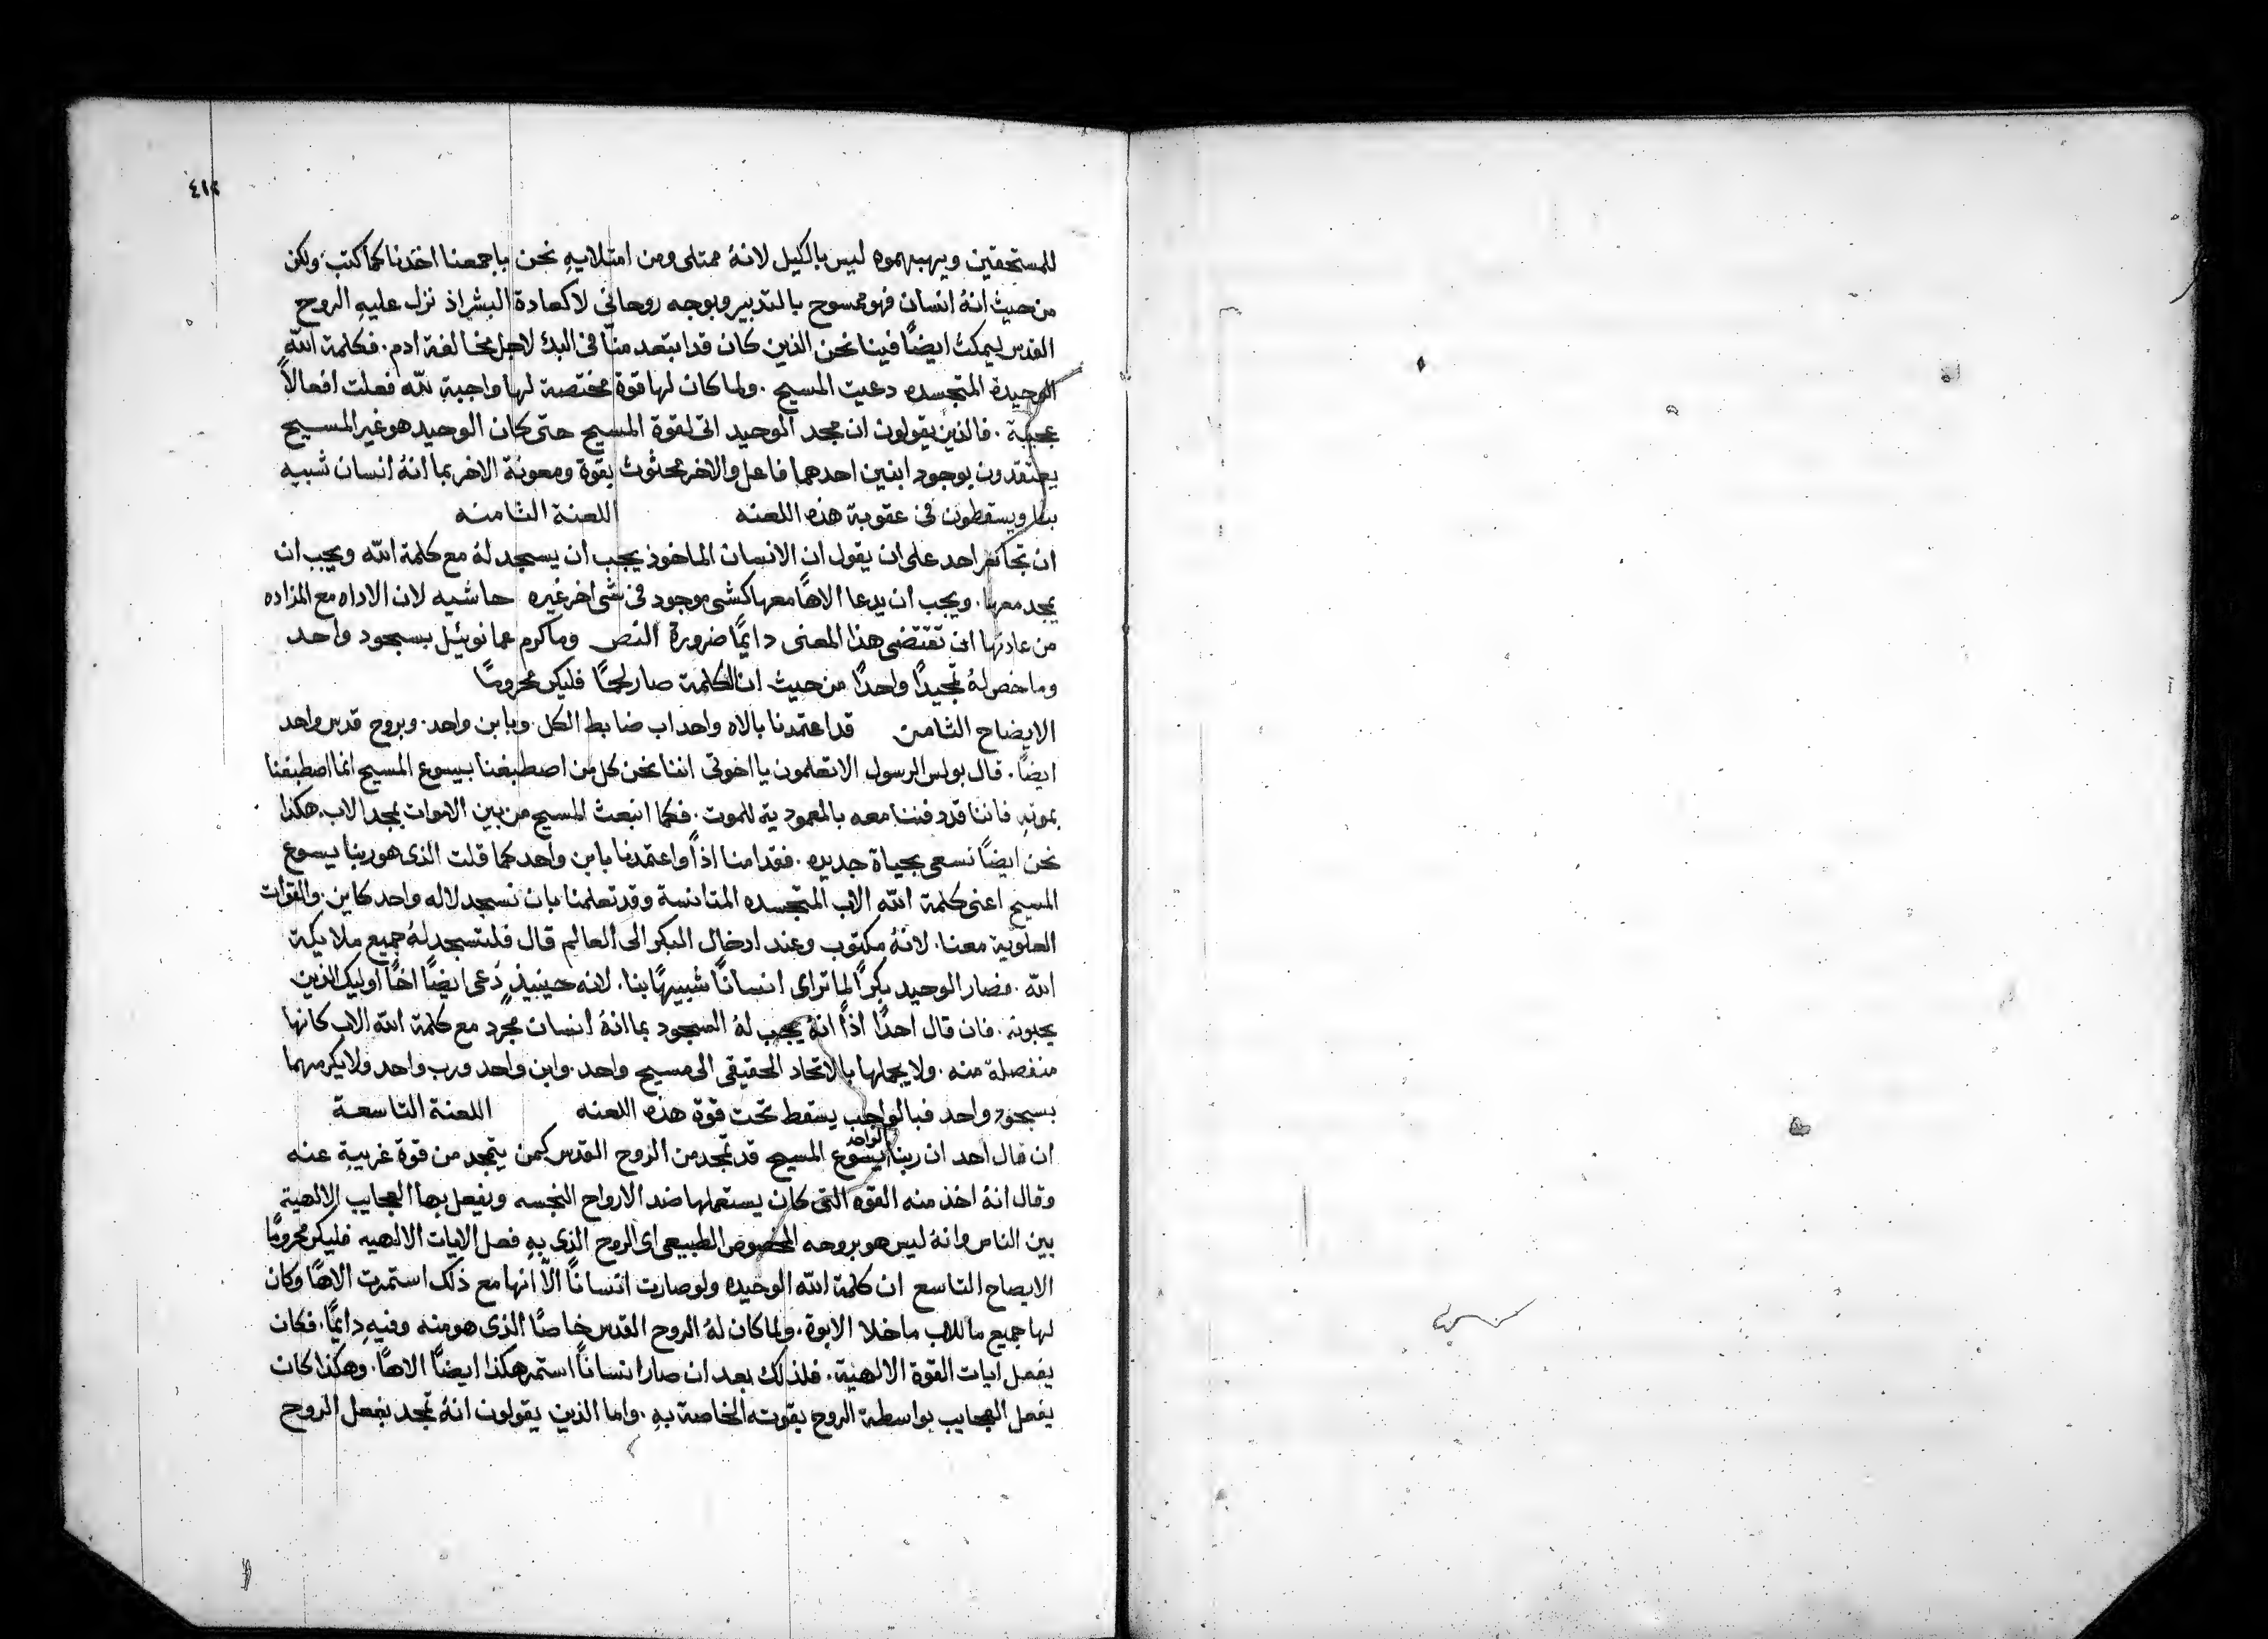 ٤١٢
للمستحقين ويهبهموه ليس بالكيل لانهُ ممتلى ومن امتلايهِ نحن باجمعنا اخذنا كما كتب. ولكن
من حيث انهُ انسان فهو ممسوح بالتدبير وبوجه روحاني لا كعادة البشر اذ نزل عليهِ الروح
القدس ليمكث ايضًا فينا نحن الذين كان قد ابتعد منا فى البدْ لاجل مخالفة ادم. فكلمة اللّه
الوحيدة المتجسده دعيت المسيح. ولما كان لها قوة مختصة لها واجبة للّه فعلت افعالاً
عجيبة. فالذين يقولون ان مجد الوحيد اتى لقوة المسيح حتى كان الوحيد هو غير المسيح
يعتقدون بوجود ابنين احدهما فاعل والاخر محثوث بقوة ومعونة الاخر بما انهُ انسان شبيه
بنا ويسقطون فى عقوبة هذه اللعنه اللعنة الثامنه
ان تجاسر احد على ان يقول ان الانسان الماخوذ يجب ان يسجد لهُ مع كلمة اللّه ويجب ان
يمجد معها. ويجب ان يدعا الاهًا معها كشى موجود فى شى اخر غيره حاشيه لان الاداه مع المزاده
من عادتها ان تقتضى هذا المعنى دايمًا ضرورة النص وما كرم عمانوئيل بسجود واحد
وما خص لهُ تمجيدًا واحدًا من حيث ان الكلمة صار لحمًا فليكن محرومًا
الايضاح الثامن قد اعتمدنا بالاه واحد اب ضابط الكل. وبابن واحد. وبروح قدس واحد
ايضًا. قال بولس الرسول الا تعلمون يا اخوتى اننا نحن كل من اصطبغنا بيسوع المسيح انما اصطبغنا
بموته فاننا قد دفننا معه بالمعمودية للموت. فكما انبعث المسيح من بين الاموات بمجد الاب. هكذا
نحن ايضًا نسعى بحياة جديده. فقد امنا اذاً واعتمدنا بابن واحد كما قلت الذى هو ربنا يسوع
المسيح اعنى كلمة اللّه الاب المتجسده المتانسة وقد تعلمنا بان نسجد لاله واحد كاين. والقوات
العلوية معنا. لانهُ مكتوب وعند ادخال البكر الى العالم قال فلتسجد لهُ جميع ملايكة
اللّه. فصار الوحيد بكرًا لما تراى انسانًا شبيهًا بنا. لانه حينيذٍ دُعى ايضًا اخًا اوليك الذين
يحبونه. فان قال احدًا اذاً انهُ يجب لهُ السجود بما انهُ انسان مجرد مع كلمة اللّه الاب كانها
منفصلة منه. ولا يجعلها بالاتحاد الحقيقى الى مسيح واحد. وابن واحد ورب واحد ولا يكرمهما
بسجود واحد فبالواجب يسقط تحت قوة هذه اللعنه اللعنة التاسعة
ان قال احد ان ربنا الواحد يسوع المسيح قد تمجد من الروح القدس كمن يتمجد من قوة غريبة عنه
وقال انهُ اخذ منه القوه التى كان يستعملها ضد الارواح النجسه ويفعل بها العجايب الالهية
بين الناس وانهُ ليس هو بروحه المخصوص الطبيعى اى الروح الذى بهِ فعل الايات الالهيه فليكن محرومًا
الايصاح التاسع ان كلمة اللّه الوحيده ولو صارت انسانًا الاّ انها مع ذلك استمرت الاهًا وكان
لها جميع ما للاب ما خلا الابوة. ولما كان لهُ الروح القدس خاصًا الذى هو منه وفيهِ دايمًا. فكان
يفعل ايات القوة الالهية. فلذلك بعد ان صار انسانًا استمر هكذا ايضًا الاهًا. وهكذا كان
يفعل العجايب بواسطة الروح بقوته الخاصة بهِ. واما الذين يقولون انهُ تمجد بفعل الروح